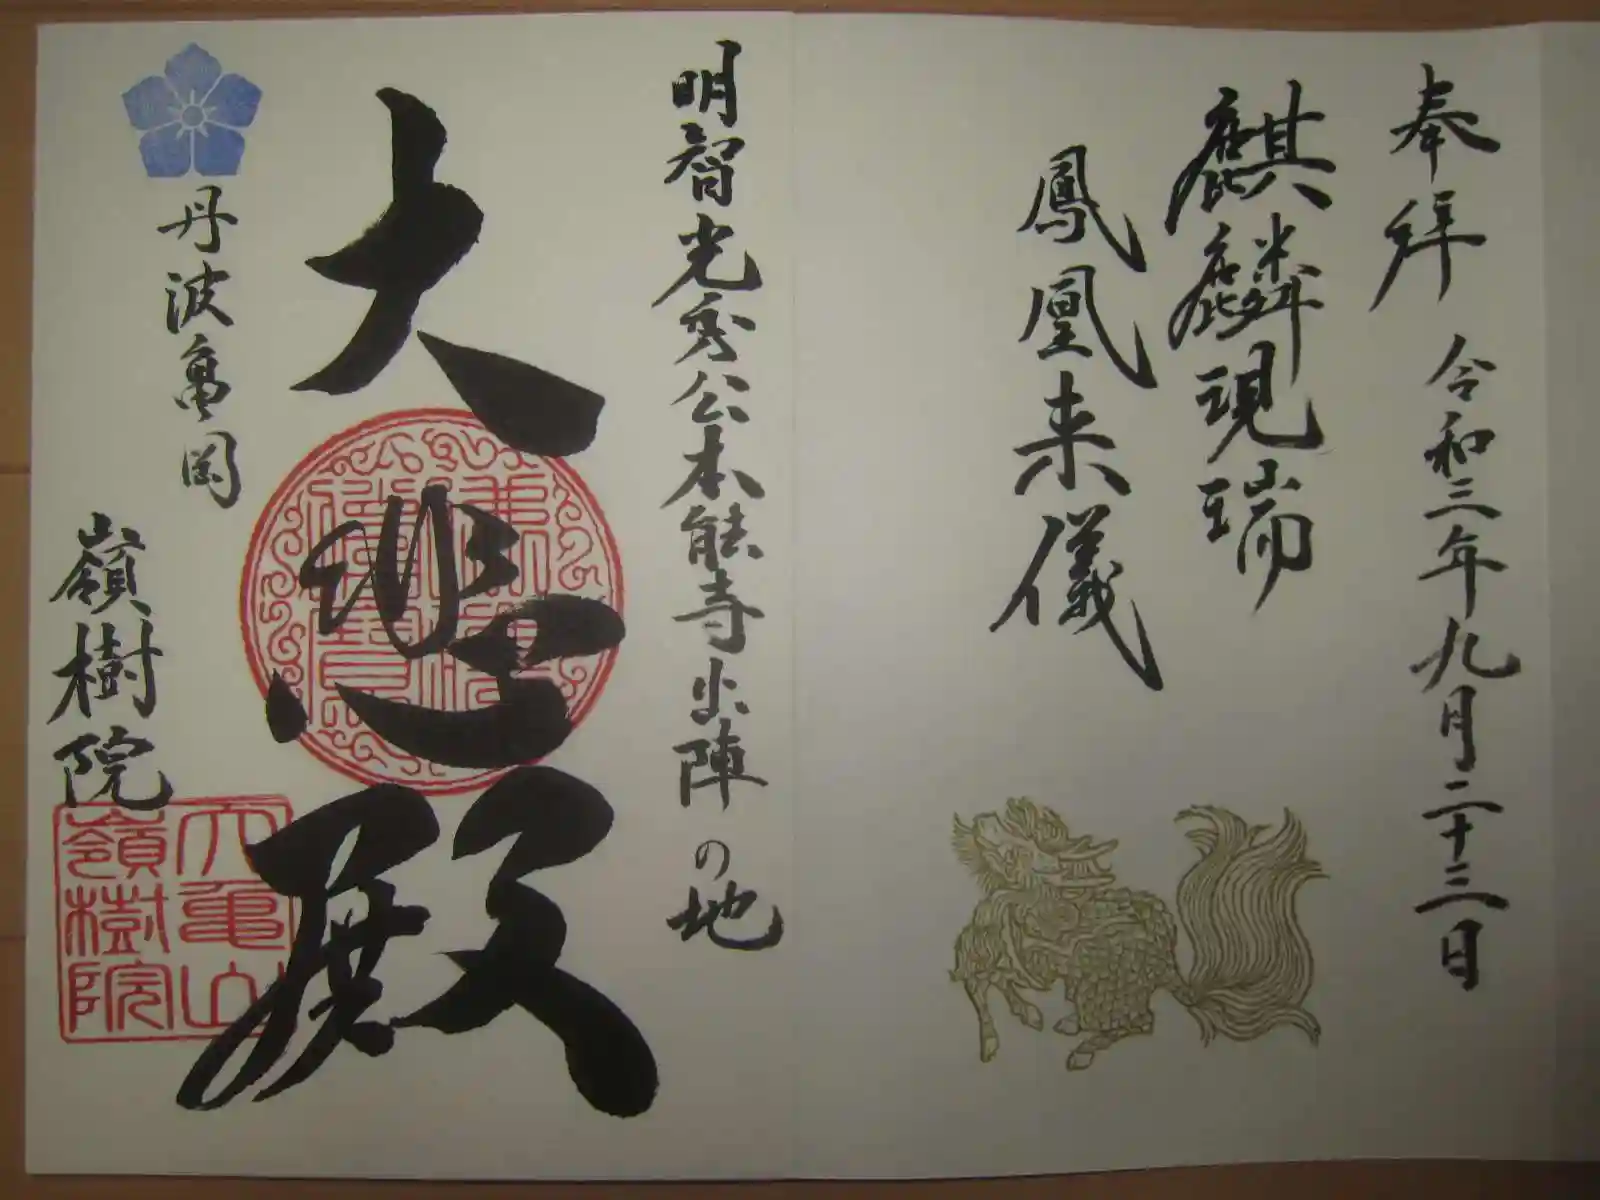 奉拝　令和三年九月二十三日
麒麟現瑞
鳳凰来儀
明智光秀公本能寺出陣の地
大悲殿
丹波亀岡
嶺樹院
大亀山
嶺樹院